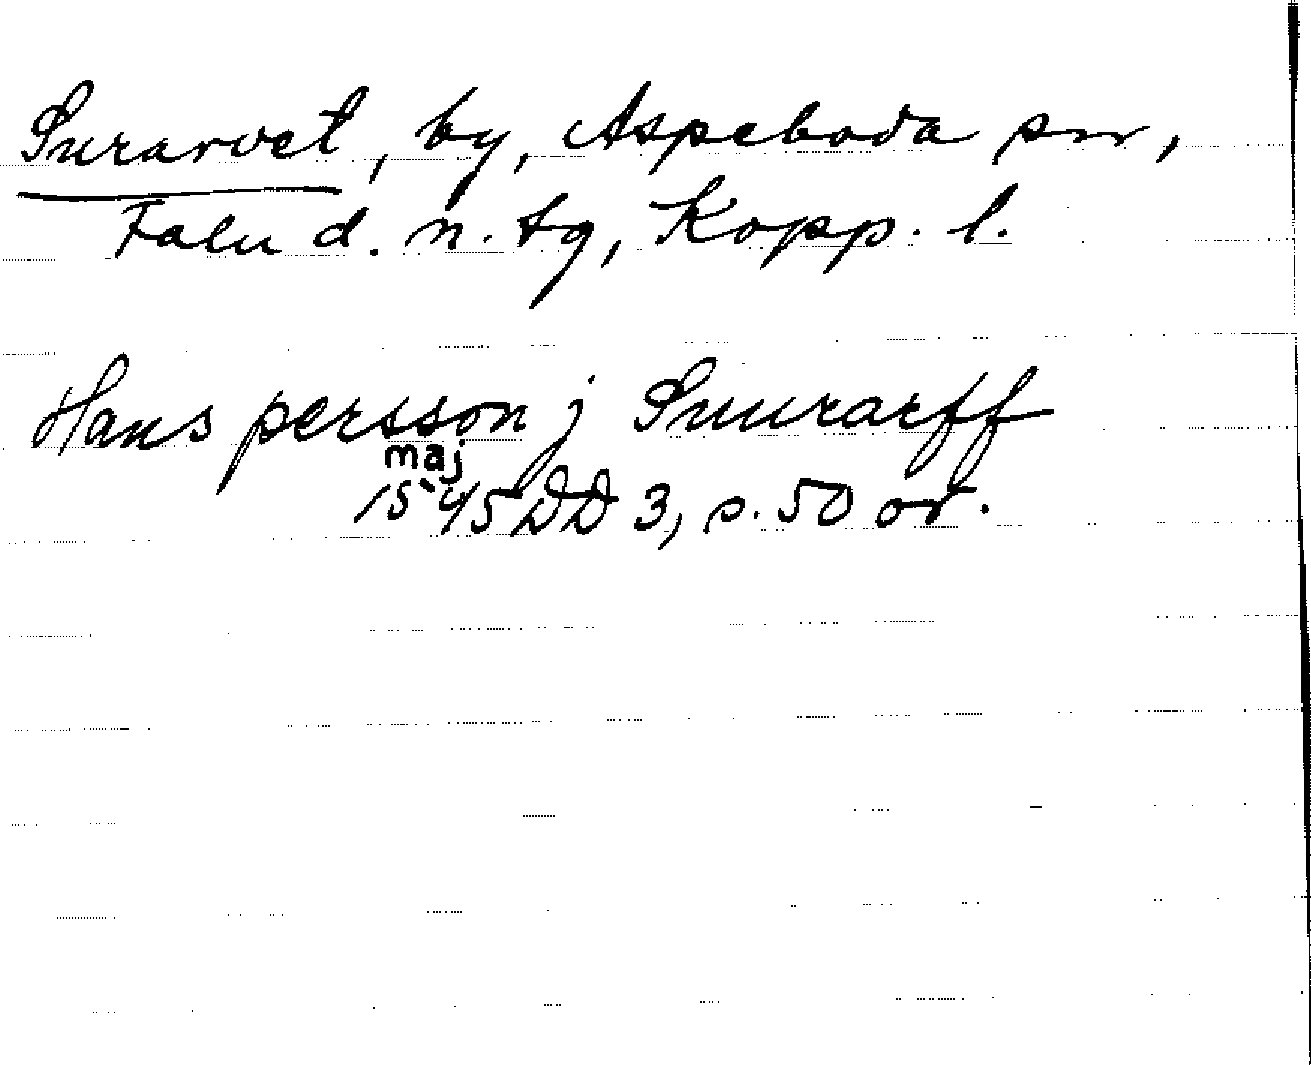 Surarvet, by, Aspeboda sn,
Falu d. n. tg, Kopp. l.
Hans persson j Suurarff
maj
15 45 DD 3, s. 50 or.